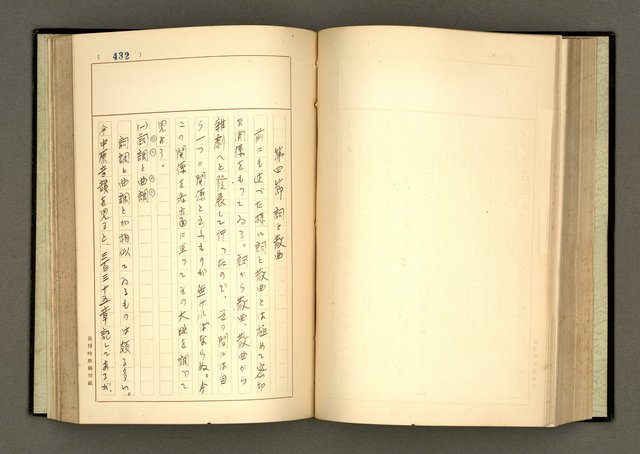 ( 432 )
第四節 詞と散曲
前にも述べた様に詞と散曲とは極めて密接
な関係をもつてゐる。詞から散曲、散曲から
雑劇へと発展して行つたので、その間には自
ら一つの関係と云ふものが無ければならぬ。今
この関係を各方面に亘つてその大略を調べて
見よう。
(一)詞調と曲調
詞調と曲調とが相似てゐるものは頗る多い。
今中原音韻を見ると、三百三十五章記してあるが、
黄得時原稿用紙